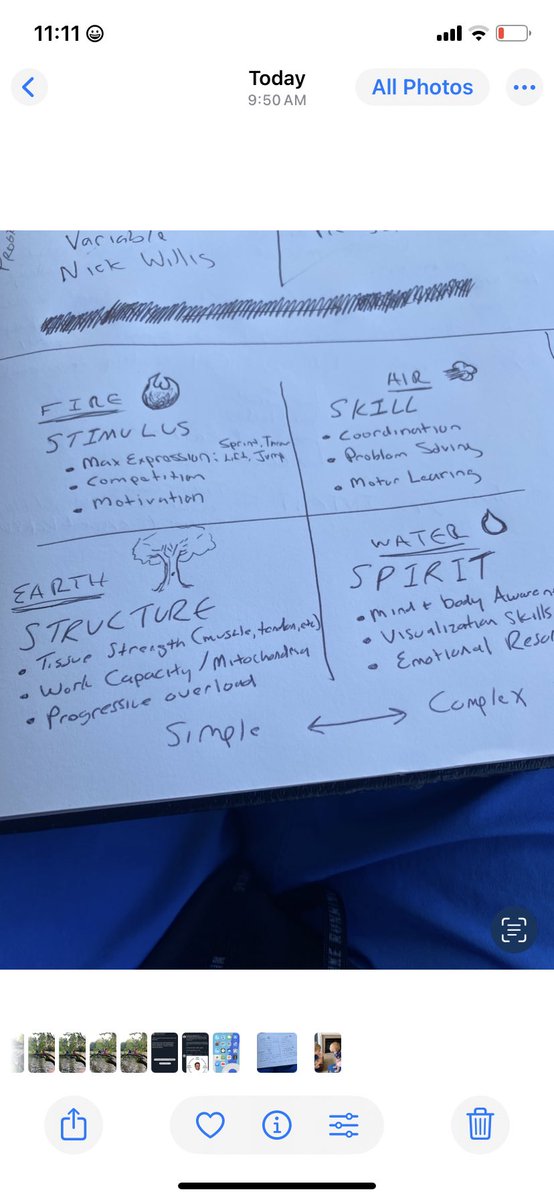 11:11
Today
9:50 AM
All Photos
Variable
Nick Willis
FIRE
STIMULUS
• Max Expression: Sprint, Throw
Lift, Jump
• Competition
• Motivation
AIR
SKILL
• Coordination
• Problem Solving
• Motor Learing
EARTH
STRUCTURE
• Tissue Strength (muscle, tendon, etc)
• Work Capacity / Mitochondria
• Progressive overload
WATER
SPIRIT
• Mind + body Awaren
• Visualization Skills
• Emotional Resol
Simple ↔ Complex